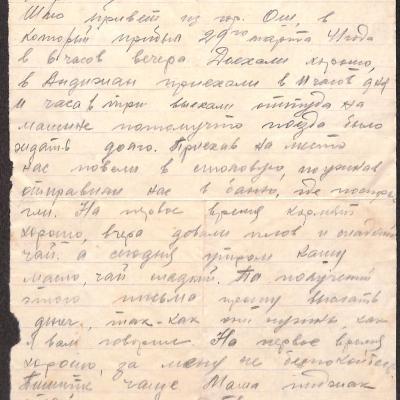 Шлю привет из гор. Ош, в
который прибыл 29го марта 41 года
в 6 часов вечера. Доехали хорошо,
в Андижан приехали в 11 часов дня
и часа в три выехали оттуда на
машине потомучто поезда было
ждать долго. Приехав на место
нас повели в столовую, поужинав
отправили нас в баню, где постри
гли. На первое время кормят
хорошо, вчера довали плов и сладкий
чай. а сегодня утром кашу
масло, чай сладкий. По получении
этого письма прошу выслать
денег, так-как они нужны, как
я вам говорил. На первое время
хорошо, за меня не беспокойтесь
Пишите чаще Мама пиджак